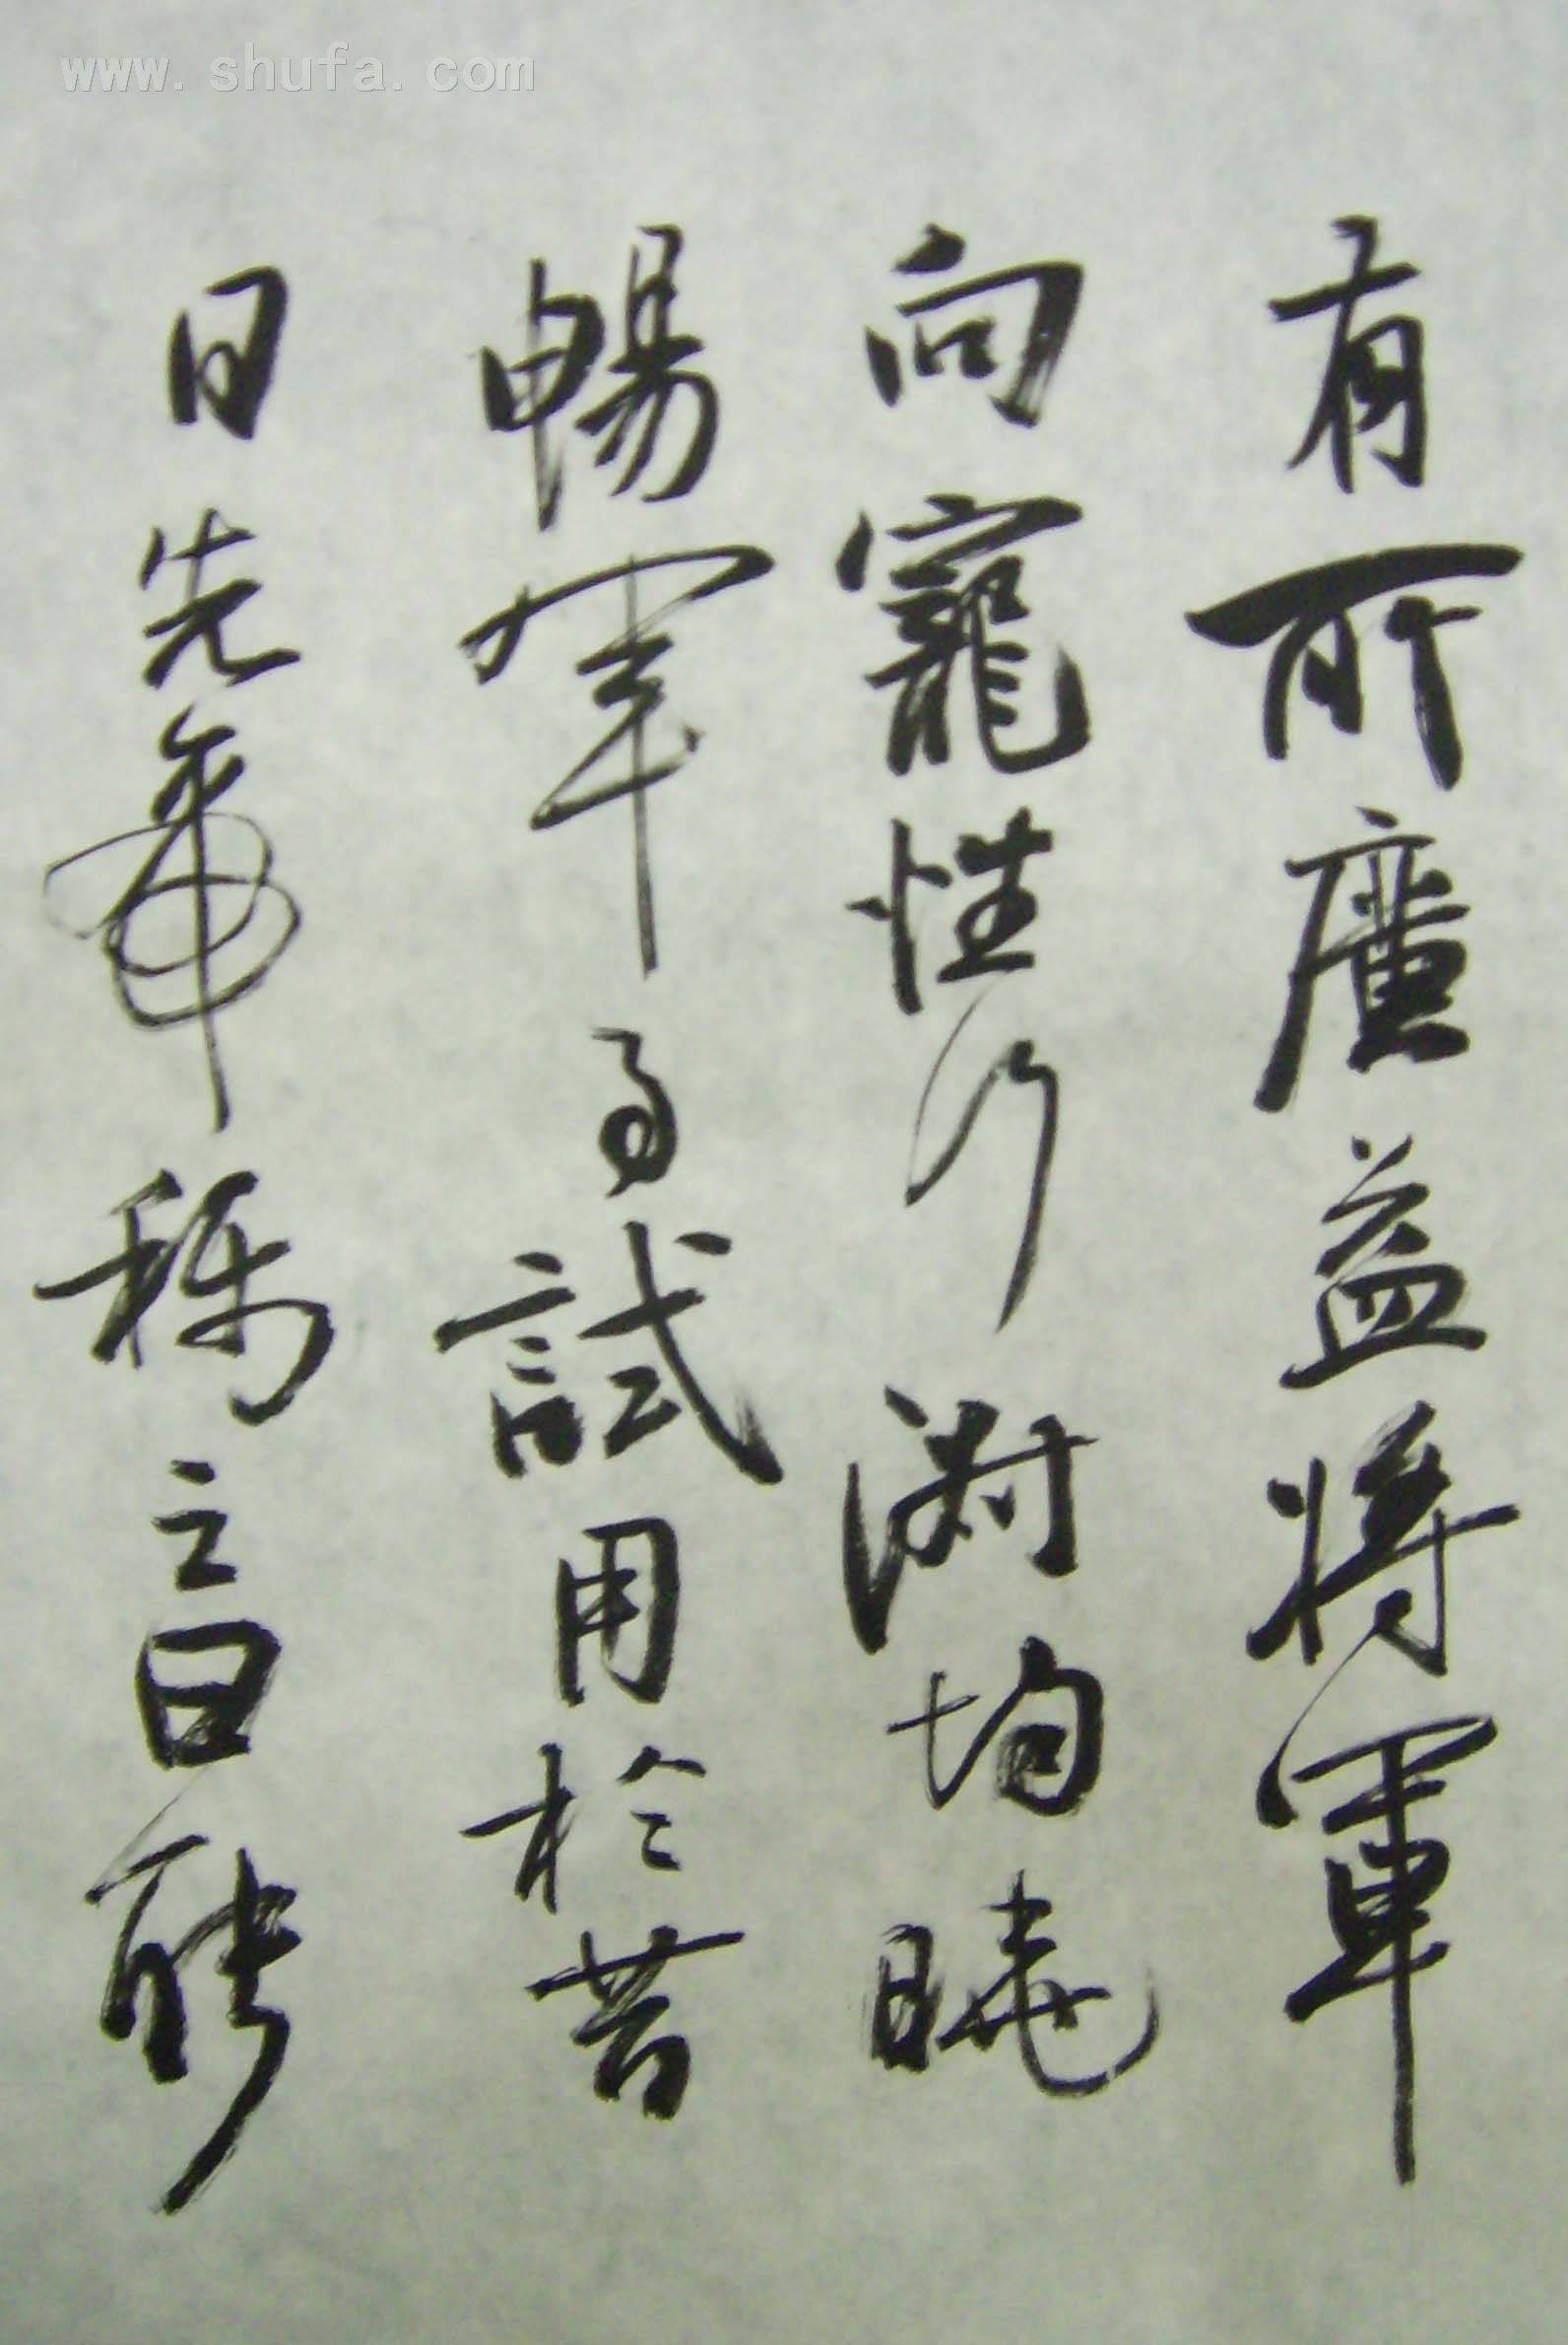 www.shufa.com
有所廣益將軍
向寵性行淑均曉
暢軍事試用於昔
日先帝稱之曰能